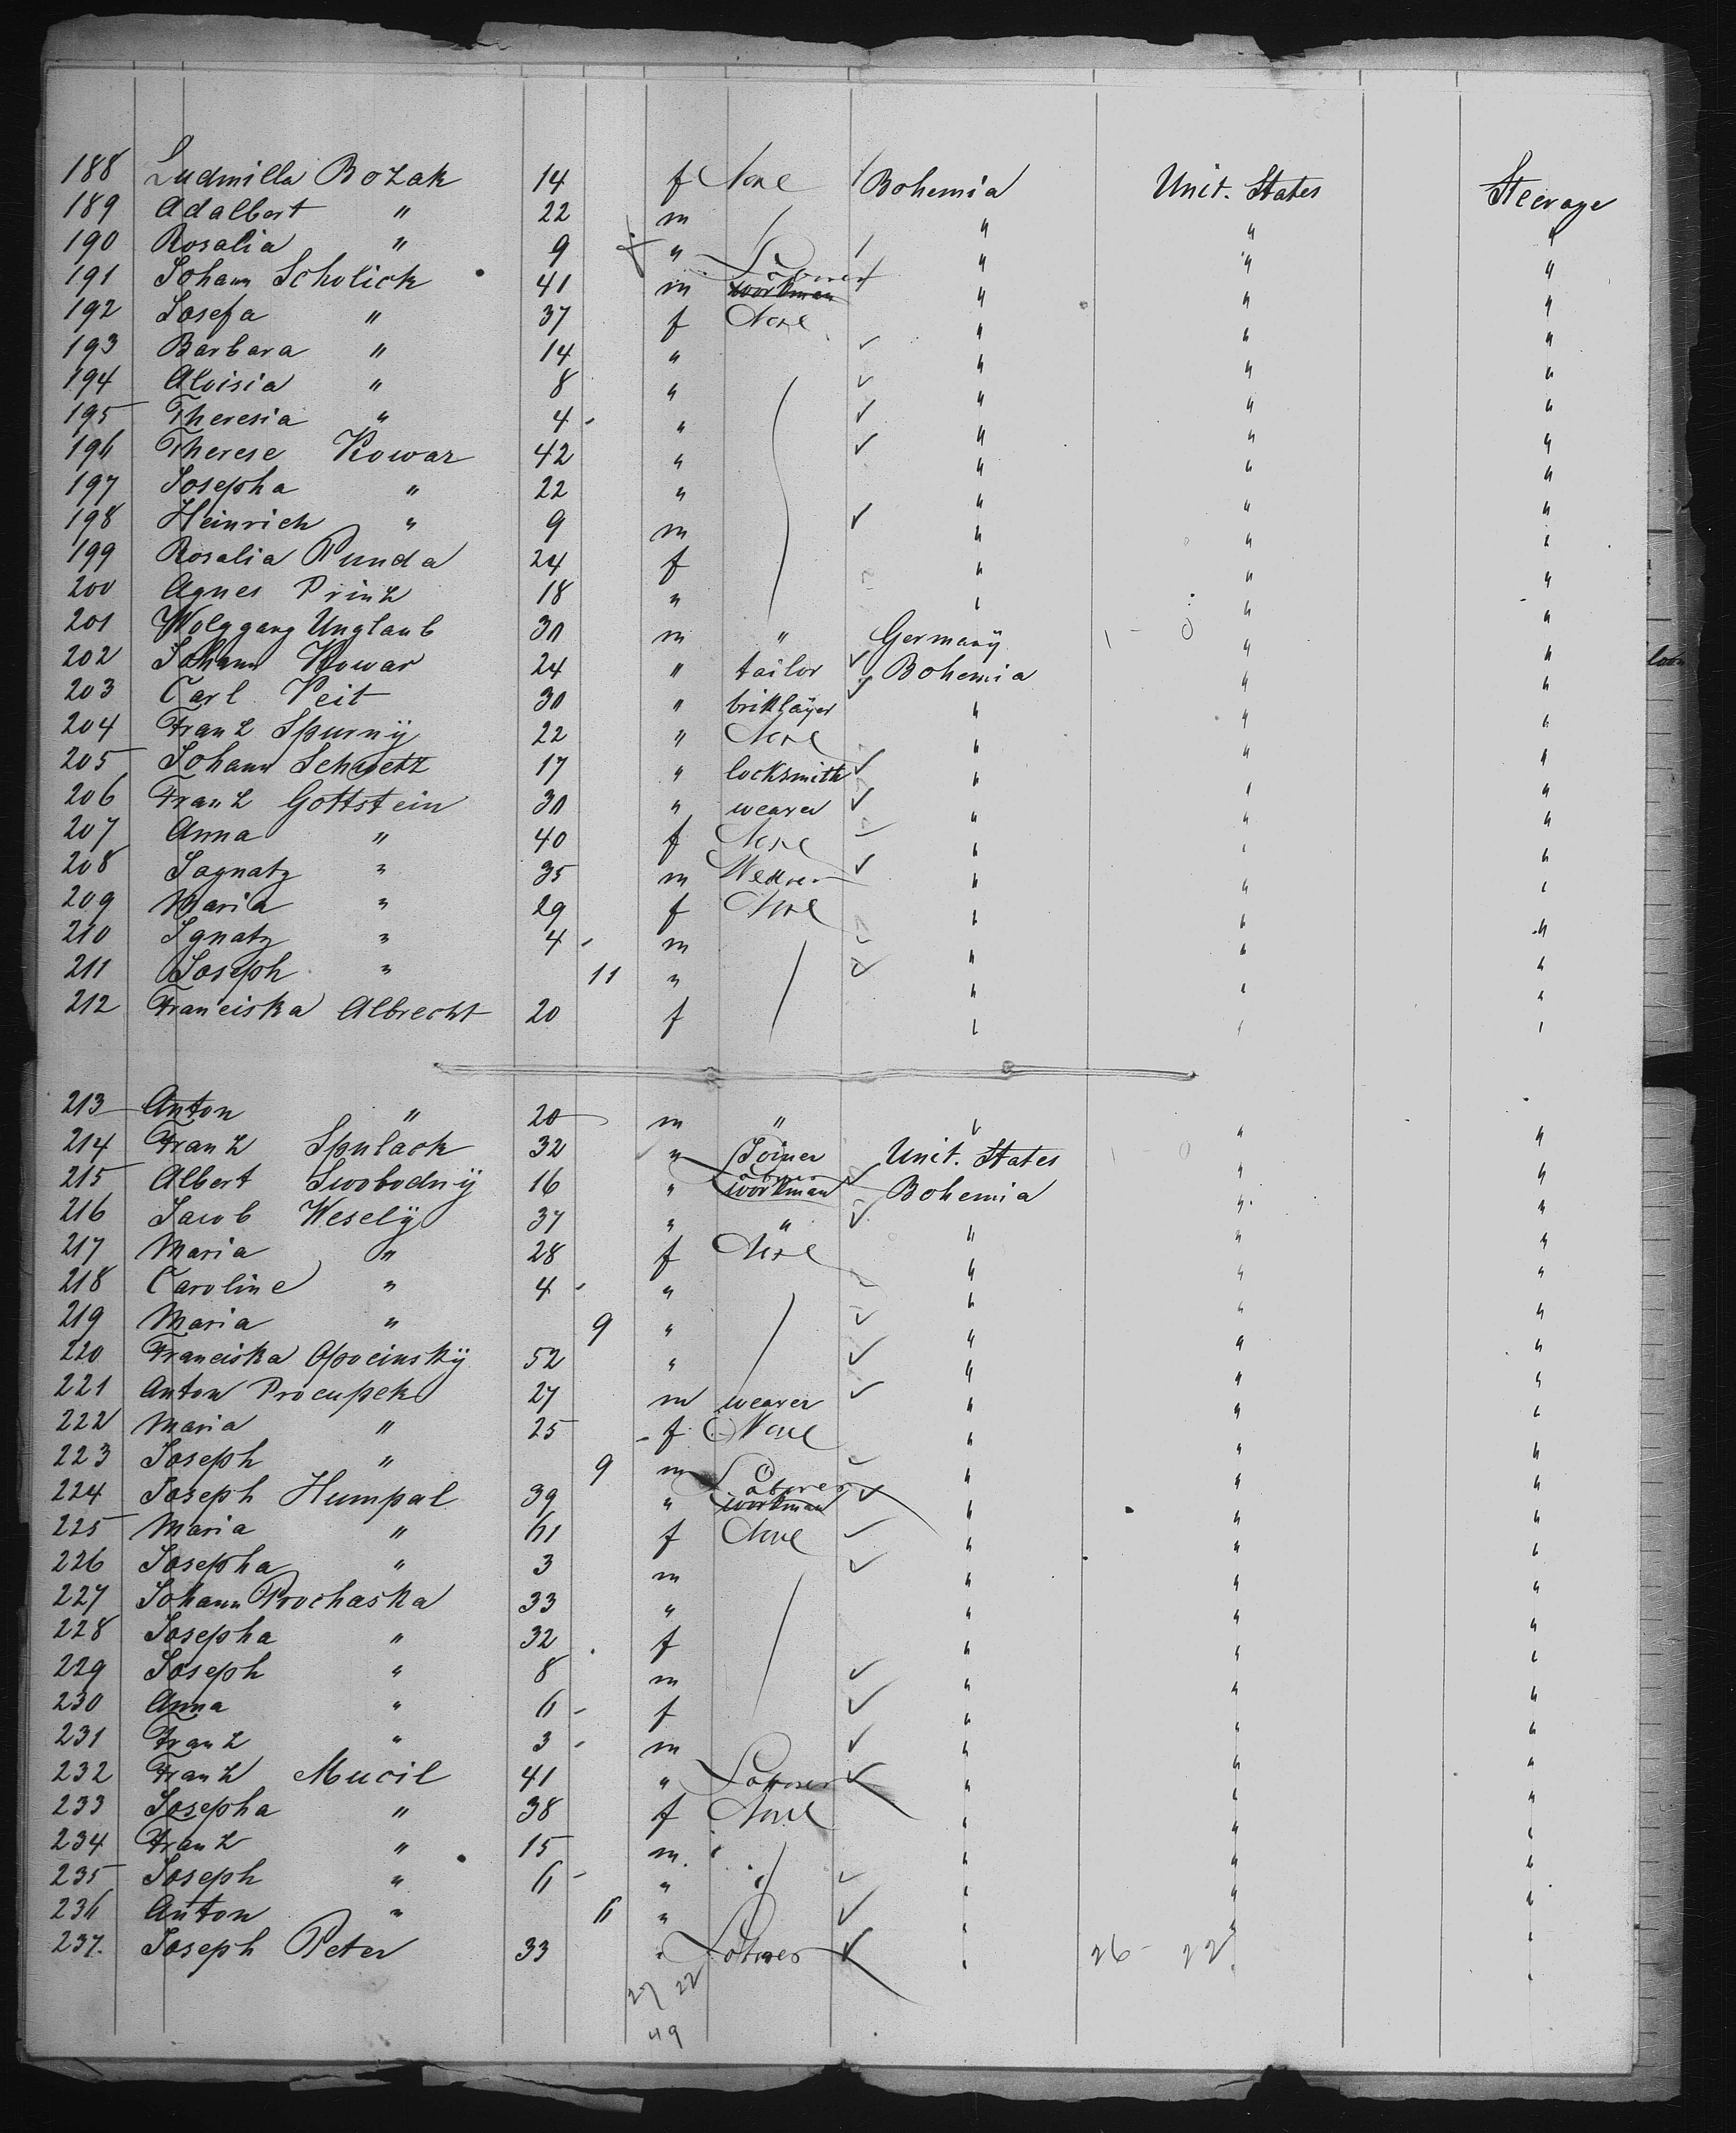 188 Ludmilla Bozak 14 f None Bohemia Unit. States Steerage
189 Adalbert " 22 m " " "
190 Rosalia " 9 " " " "
191 Johann Scholick 41 m Laborer workman " " "
192 Josefa " 37 f None " " "
193 Barbara " 14 " " " "
194 Aloisia " 8 " " " "
195 Theresia " 4 " " " "
196 Therese Kowar 42 " " " "
197 Josepha " 22 " " " "
198 Heinrich " 9 m " " "
199 Rosalia Punda 24 f " " "
200 Agnes Prinz 18 " " " "
201 Wolggang Unglaub 30 m " Germany " "
202 Johann Kowar 24 " tailor Bohemia " "
203 Carl Veit 30 " briklayer " " "
204 Franz Spurny 22 " None " " "
205 Johann 17 " locksmith " " "
206 Franz Gottstein 30 " weaver " " "
207 Anna " 40 f None " " "
208 Iagnatz " 35 m Weaver " " "
209 Maria " 29 f None " " "
210 Ignatz " 4 m " " "
211 Joseph " 11 " " " "
212 Franciska Albrecht 20 f " " "
213 Anton " 20 m " " " "
214 Franz Spulack 32 " Joiner Unit. States " "
215 Albert Swobodny 16 " Laborer workman Bohemia " "
216 Jacob Wesely 37 " " " " "
217 Maria " 28 f None " " "
218 Caroline " 4 " " " "
219 Maria " 9 " " " "
220 Franciska Opocinsky 52 " " " "
221 Anton Procupek 27 m weaver " " "
222 Maria " 25 f None " " "
223 Joseph " 9 m " " "
224 Joseph Humpal 39 " Laborer workman " " "
225 Maria " 61 f None " " "
226 Josepha " 3 m " " "
227 Johann Prochaska 33 " " " "
228 Josepha " 32 f " " "
229 Joseph " 8 m " " "
230 Anna " 6 f " " "
231 Franz " 3 m " " "
232 Franz Mucil 41 " Laborer " " "
233 Josepha " 38 f None " " "
234 Franz " 15 m " " " "
235 Joseph " 6 " " " " "
236 Anton " 6 " " " "
237. Joseph Peter 33 " Laborer " 26 - 22 " "
27 22
49